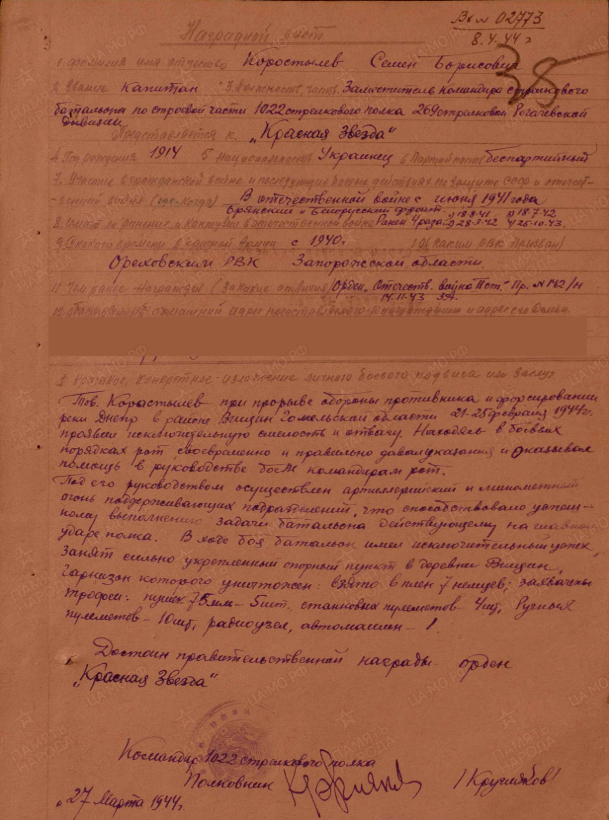 Вх № 02773
8.4.44 г
38
Наградной лист
1. Фамилия имя отчество Коростылев Семен Борисович
2. Звание Капитан 3. Должность, часть Заместитель командира стрелкового
батальона по строевой части 1022 стрелкового полка 269 стрелковой Рогачевской
дивизии
Представляется к „Красная Звезда"
4. Год рождения 1914 5 Национальность Украинец 6 Партийность беспартийный
7. Участие в гражданской войне и последующих боевых действиях по защите СССР и отечест-
венной войне (где, когда) В отечественной войне с июня 1941 года
Брянский и Белорусский фронт
8. Имеет ли ранения и контузии в отечественной войне Ранен 4 раза 18.8.41 18.7.42
28.3.42 25.10.43.
9. С какого времени в Красной Армии с 1940г. 10 Каким РВК призван
Ореховским РВК Запорожской области
11. Чем ранее награжден (за какие отличия) Орден „Отечеств. война II ст." Пр. № 182/н
14.11.43
12. Постоянный домашний адрес представляемого к награждению и адрес его семьи
I Краткое, конкретное изложение личного боевого подвига или заслуг
Тов. Коростылев при прорыве обороны противника и форсировании
реки Днепр в районе Вищин Гомельской области 21-25 февраля 1944г.
проявил исключительную смелость и отвагу. Находясь в боевых
порядках рот, своевременно и правильно давал указания и оказывал
помощь в руководстве боем командирам рот.
Под его руководством осуществлен артиллерийский и минометный
огонь поддерживающих подразделений, что способствовало успеш-
ному выполнению задачи батальона действующему на главном
ударе полка. В ходе боя батальон имел исключительный успех,
занят сильно укрепленный опорный пункт в деревни Вищин,
гарнизон которого уничтожен: взято в плен 7 немцев; захвачены
трофеи: пушек 75 мм - 5 шт. станковых пулеметов - 4 шт, Ручных
пулеметов - 10 шт, радиоузел, автомашин - 1.
Достоин правительственной награды орден
„Красная Звезда"
Командир 1022 стрелкового полка
Полковник /Кругляков/
„27 Марта 1944г.